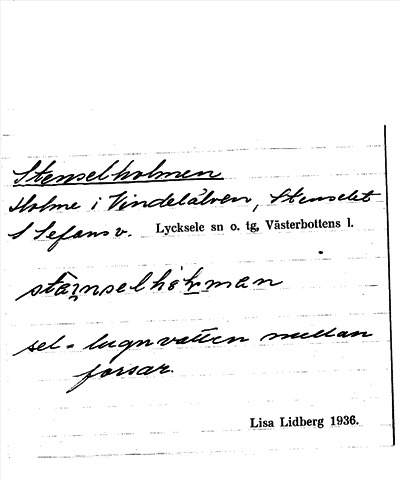 Stenselholmen
Holme i Vindelälven, Stenselet
Lycksele sn o. tg, Västerbottens l.
sel = lugnvatten mellan
forsar.
Lisa Lidberg 1936.